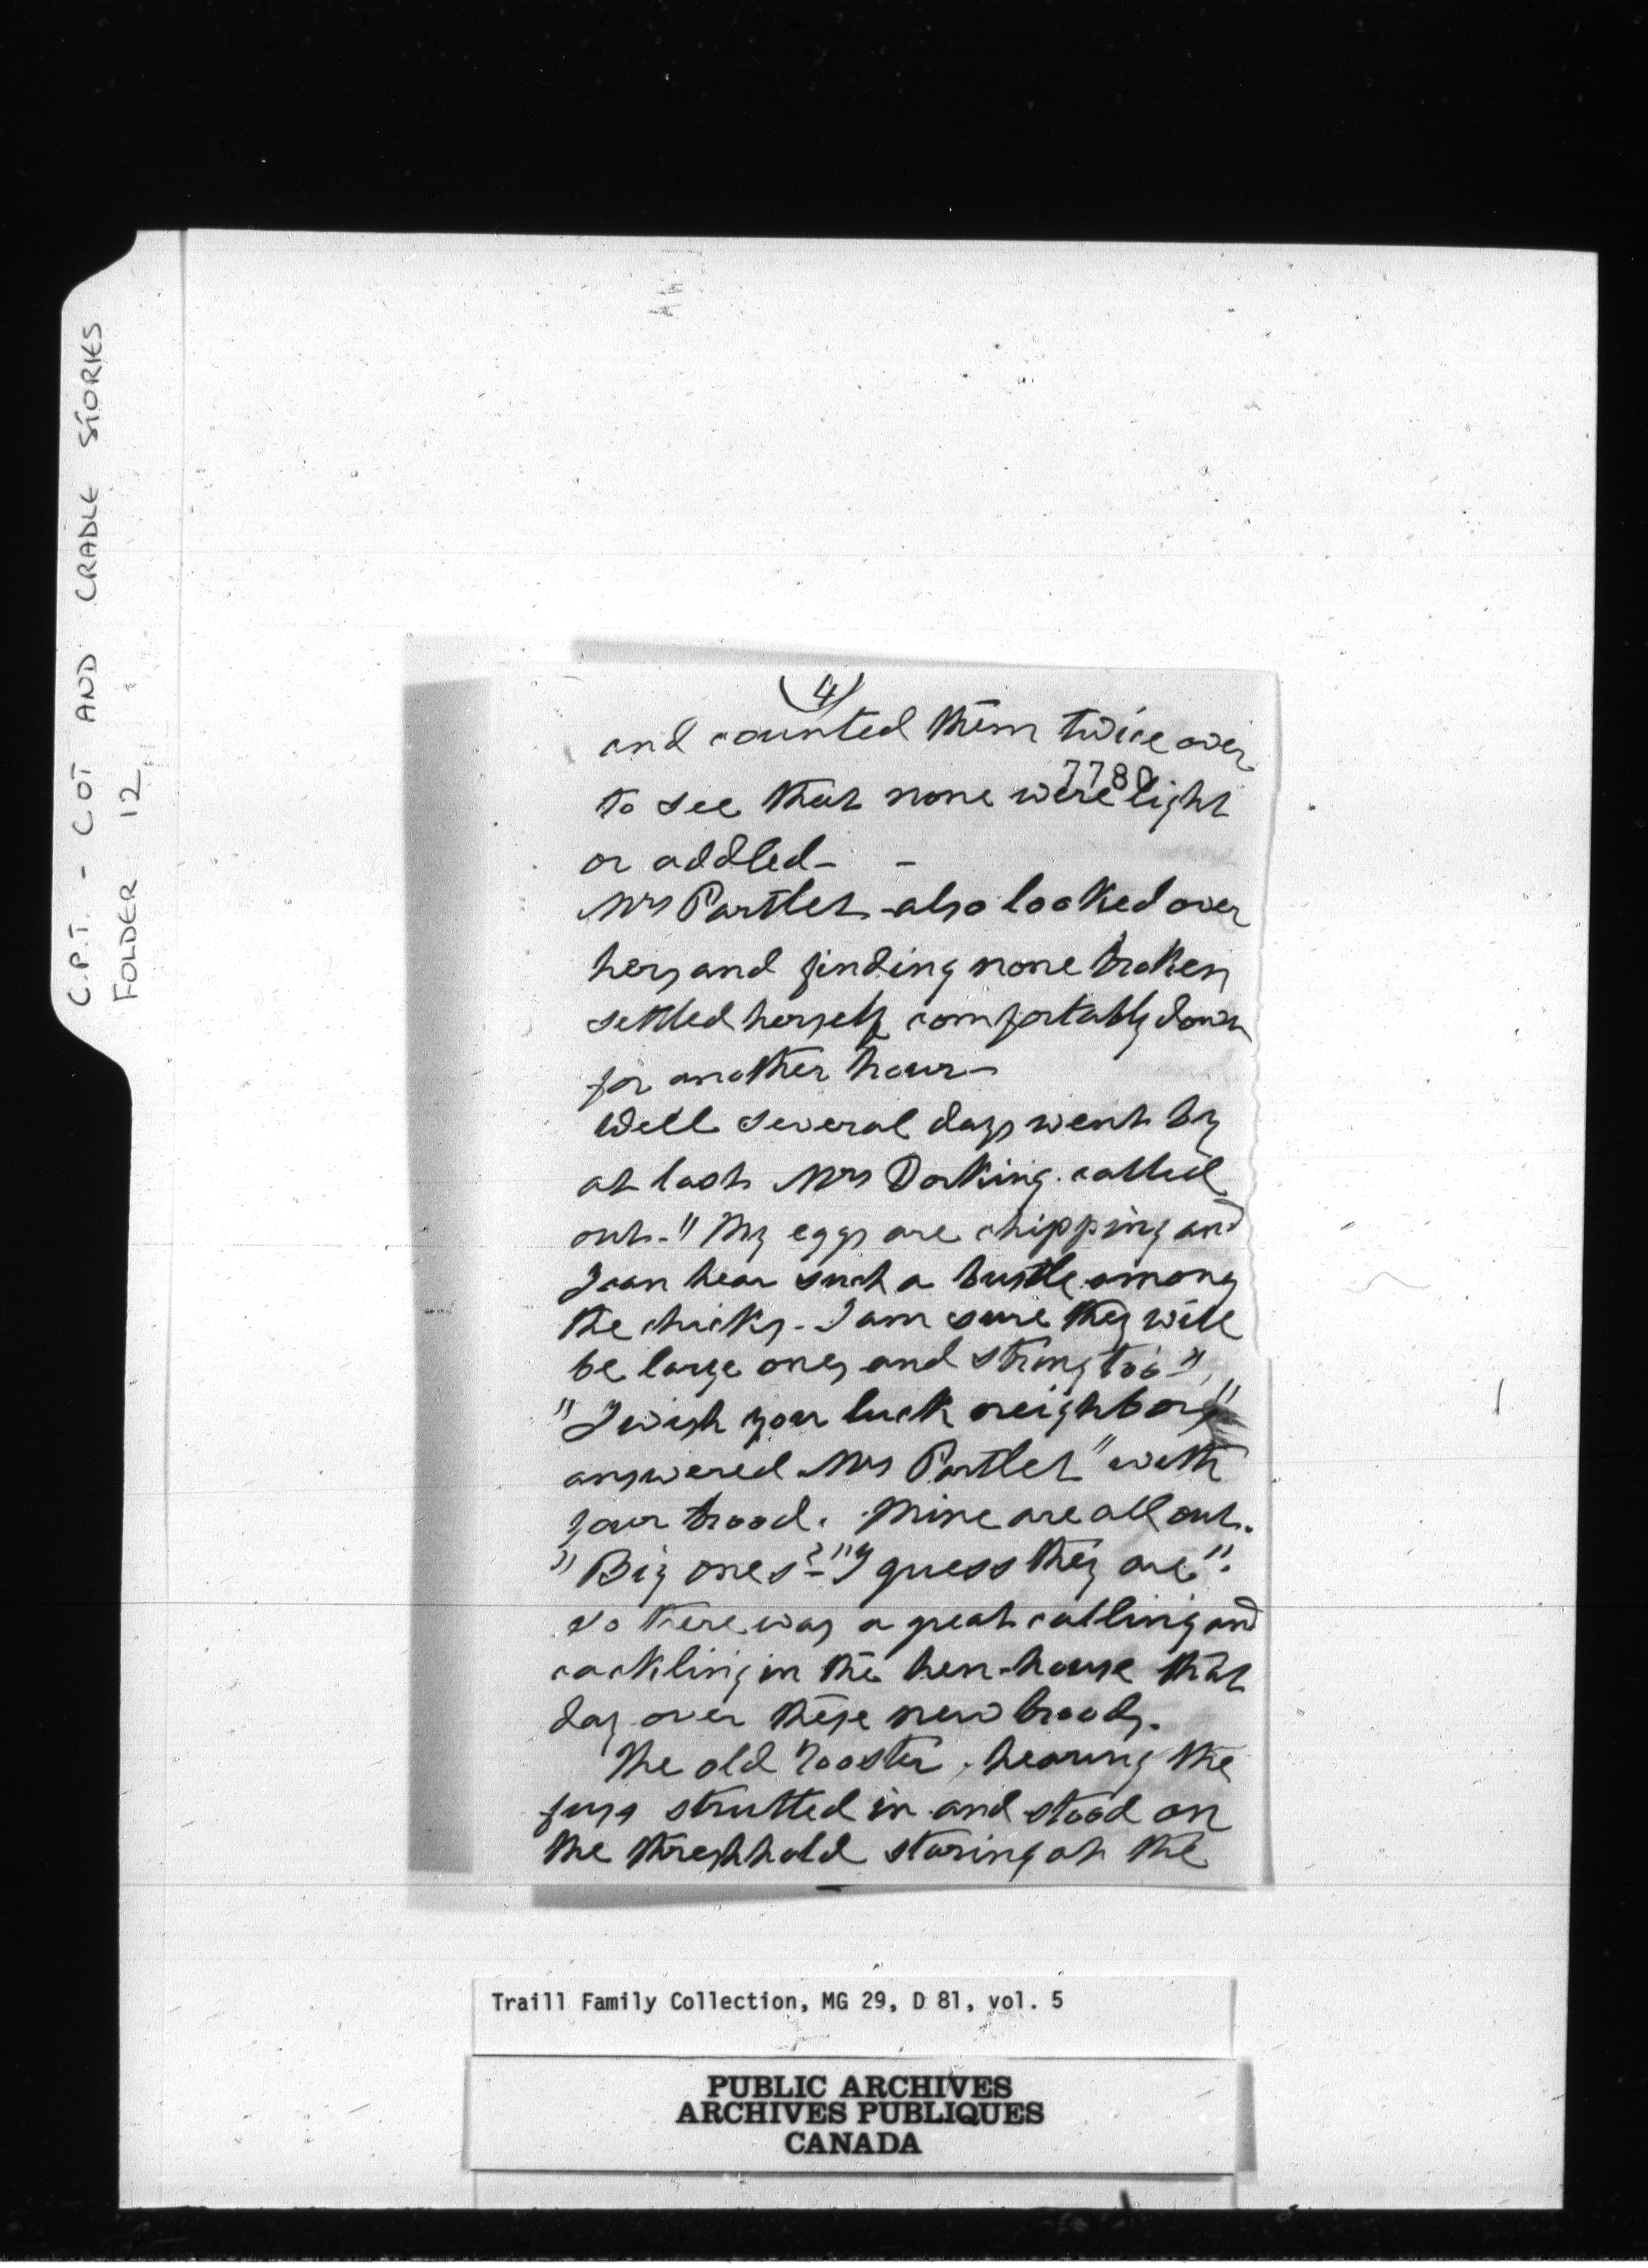 C.P.T. - COT AND CRADLE STORIES
FOLDER 12
(4)
and counted them twice over
7780
to see that none were light
or addled - -
Mrs Partlet also looked over
hers and finding none broken
settled herself comfortably down
for another hour -
Well several days went by
at last Mrs Dorking called
out - "My eggs are chipping and
I can hear such a bustle among
the chicks - I am sure they will
be large ones and strong too",
"I wish you luck neighbor"
answered Mrs Partlet "with
your brood. Mine are all out.
"Big ones?" "I guess they are".
So there was a great calling and
cackling in the hen-house that
day over these new broods.
The old rooster, hearing the
fuss strutted in and stood on
the threshhold staring at the
Traill Family Collection, MG 29, D 81, vol. 5
PUBLIC ARCHIVES
ARCHIVES PUBLIQUES
CANADA